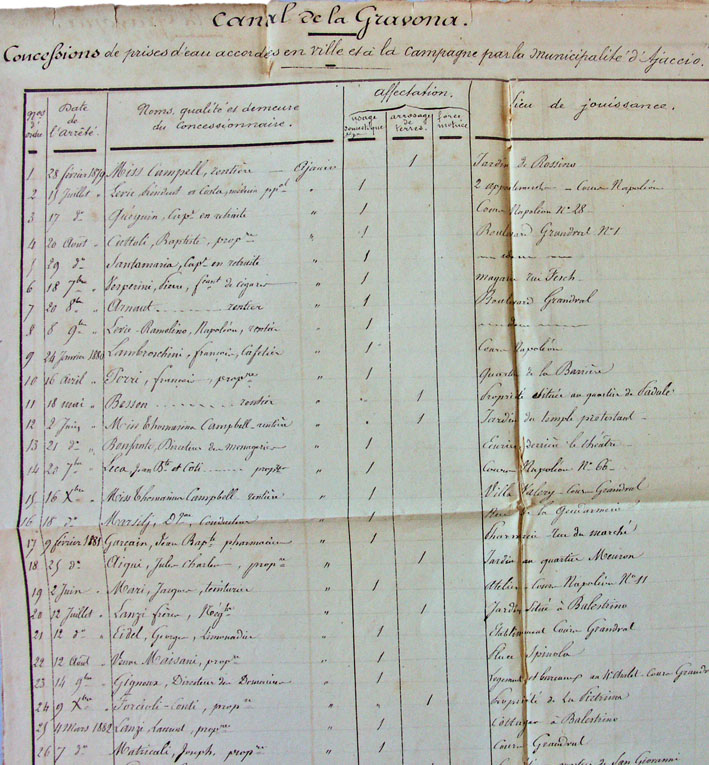 Canal de la Gravona.
Concessions de prises d'eau accordés en ville et à la campagne par la municipalité d'Ajaccio.
Nos d'ordre Date de l'Arrêté Noms, qualité et demeure du concessionnaire. affectation. usage domestique arrosage de terres force motrice Lieu de jouissance.
1 28 février 1879 Miss Campell, rentière — Ajaccio 1 Jardin de Rossins
2 15 Juillet " Levie, et Costa, médecin ppal " 1 2 appartements — Cours Napoléon
3 17 do Guignin, Cape en retraite " 1 Cours Napoléon No 28
4 20 Août " Cuttoli, Baptiste, propre " 1 Boulevard Grandval No 1
5 29 do Santamaria, Cape en retraite " 1 — idem —
6 18 7bre " Pierre, de cigares " 1 magasin rue Fesch
7 20 8bre " Arnaut rentier " 1 Boulevard Grandval
8 8 9bre " Levie-Ramolino, Napoléon, rentier " 1 — idem —
9 24 Janvier 1880 Lambroschini, françois, Cafetier " 1 Cours Napoléon
10 16 Avril " Torri, françois, propre " 1 Quartier de la Barrière
11 18 mai " Besson rentier " " 1 Propriété située au quartier de Padule
12 2 Juin " Miss Thomasina Campbell, rentière " " 1 Jardin du temple protestant
13 21 do " Bonfante, Directeur de ménagerie " 1 Ecurie, derrière le théâtre
14 20 7bre " Leca Jean Bte et Coti propres " 1 Cours Napoléon No 66
15 16 Xbre Miss Thomasina Campbell rentière " 1 Villa Valery — Cours Grandval
16 18 do Conducteur " 1 Rue de la Gendarmerie
17 9 février 1881 Garcain, Jean Bapte pharmacien " 1 Pharmacie rue du marché
18 25 do Jules Charles, propre " 1 Jardin au quartier Meuron
19 2 Juin " Mari, Jacques, teinturier " 1 Atelier — Cours Napoléon No 11
20 12 Juillet " Lanzi frères, Négts " 1 Jardin située à Balestrino
21 12 do " George, Limonadier " 1 Etablissement Cours Grandval
22 12 Août " Massani, propre " 1 Place Spinola
23 14 9bre " Directeur des Domaines " 1 Logement et bureaux au 4e Chalet — Cours Grandval
24 9 Xbre " Forcioli-Conti, propre " 1 Propriété de la Pietrina
25 4 Mars 1882 Lanzi Laurent, propre " 1 Cottages à Balestrino
26 7 do " Joseph, propre " 1 Cours Grandval
San Giovanni